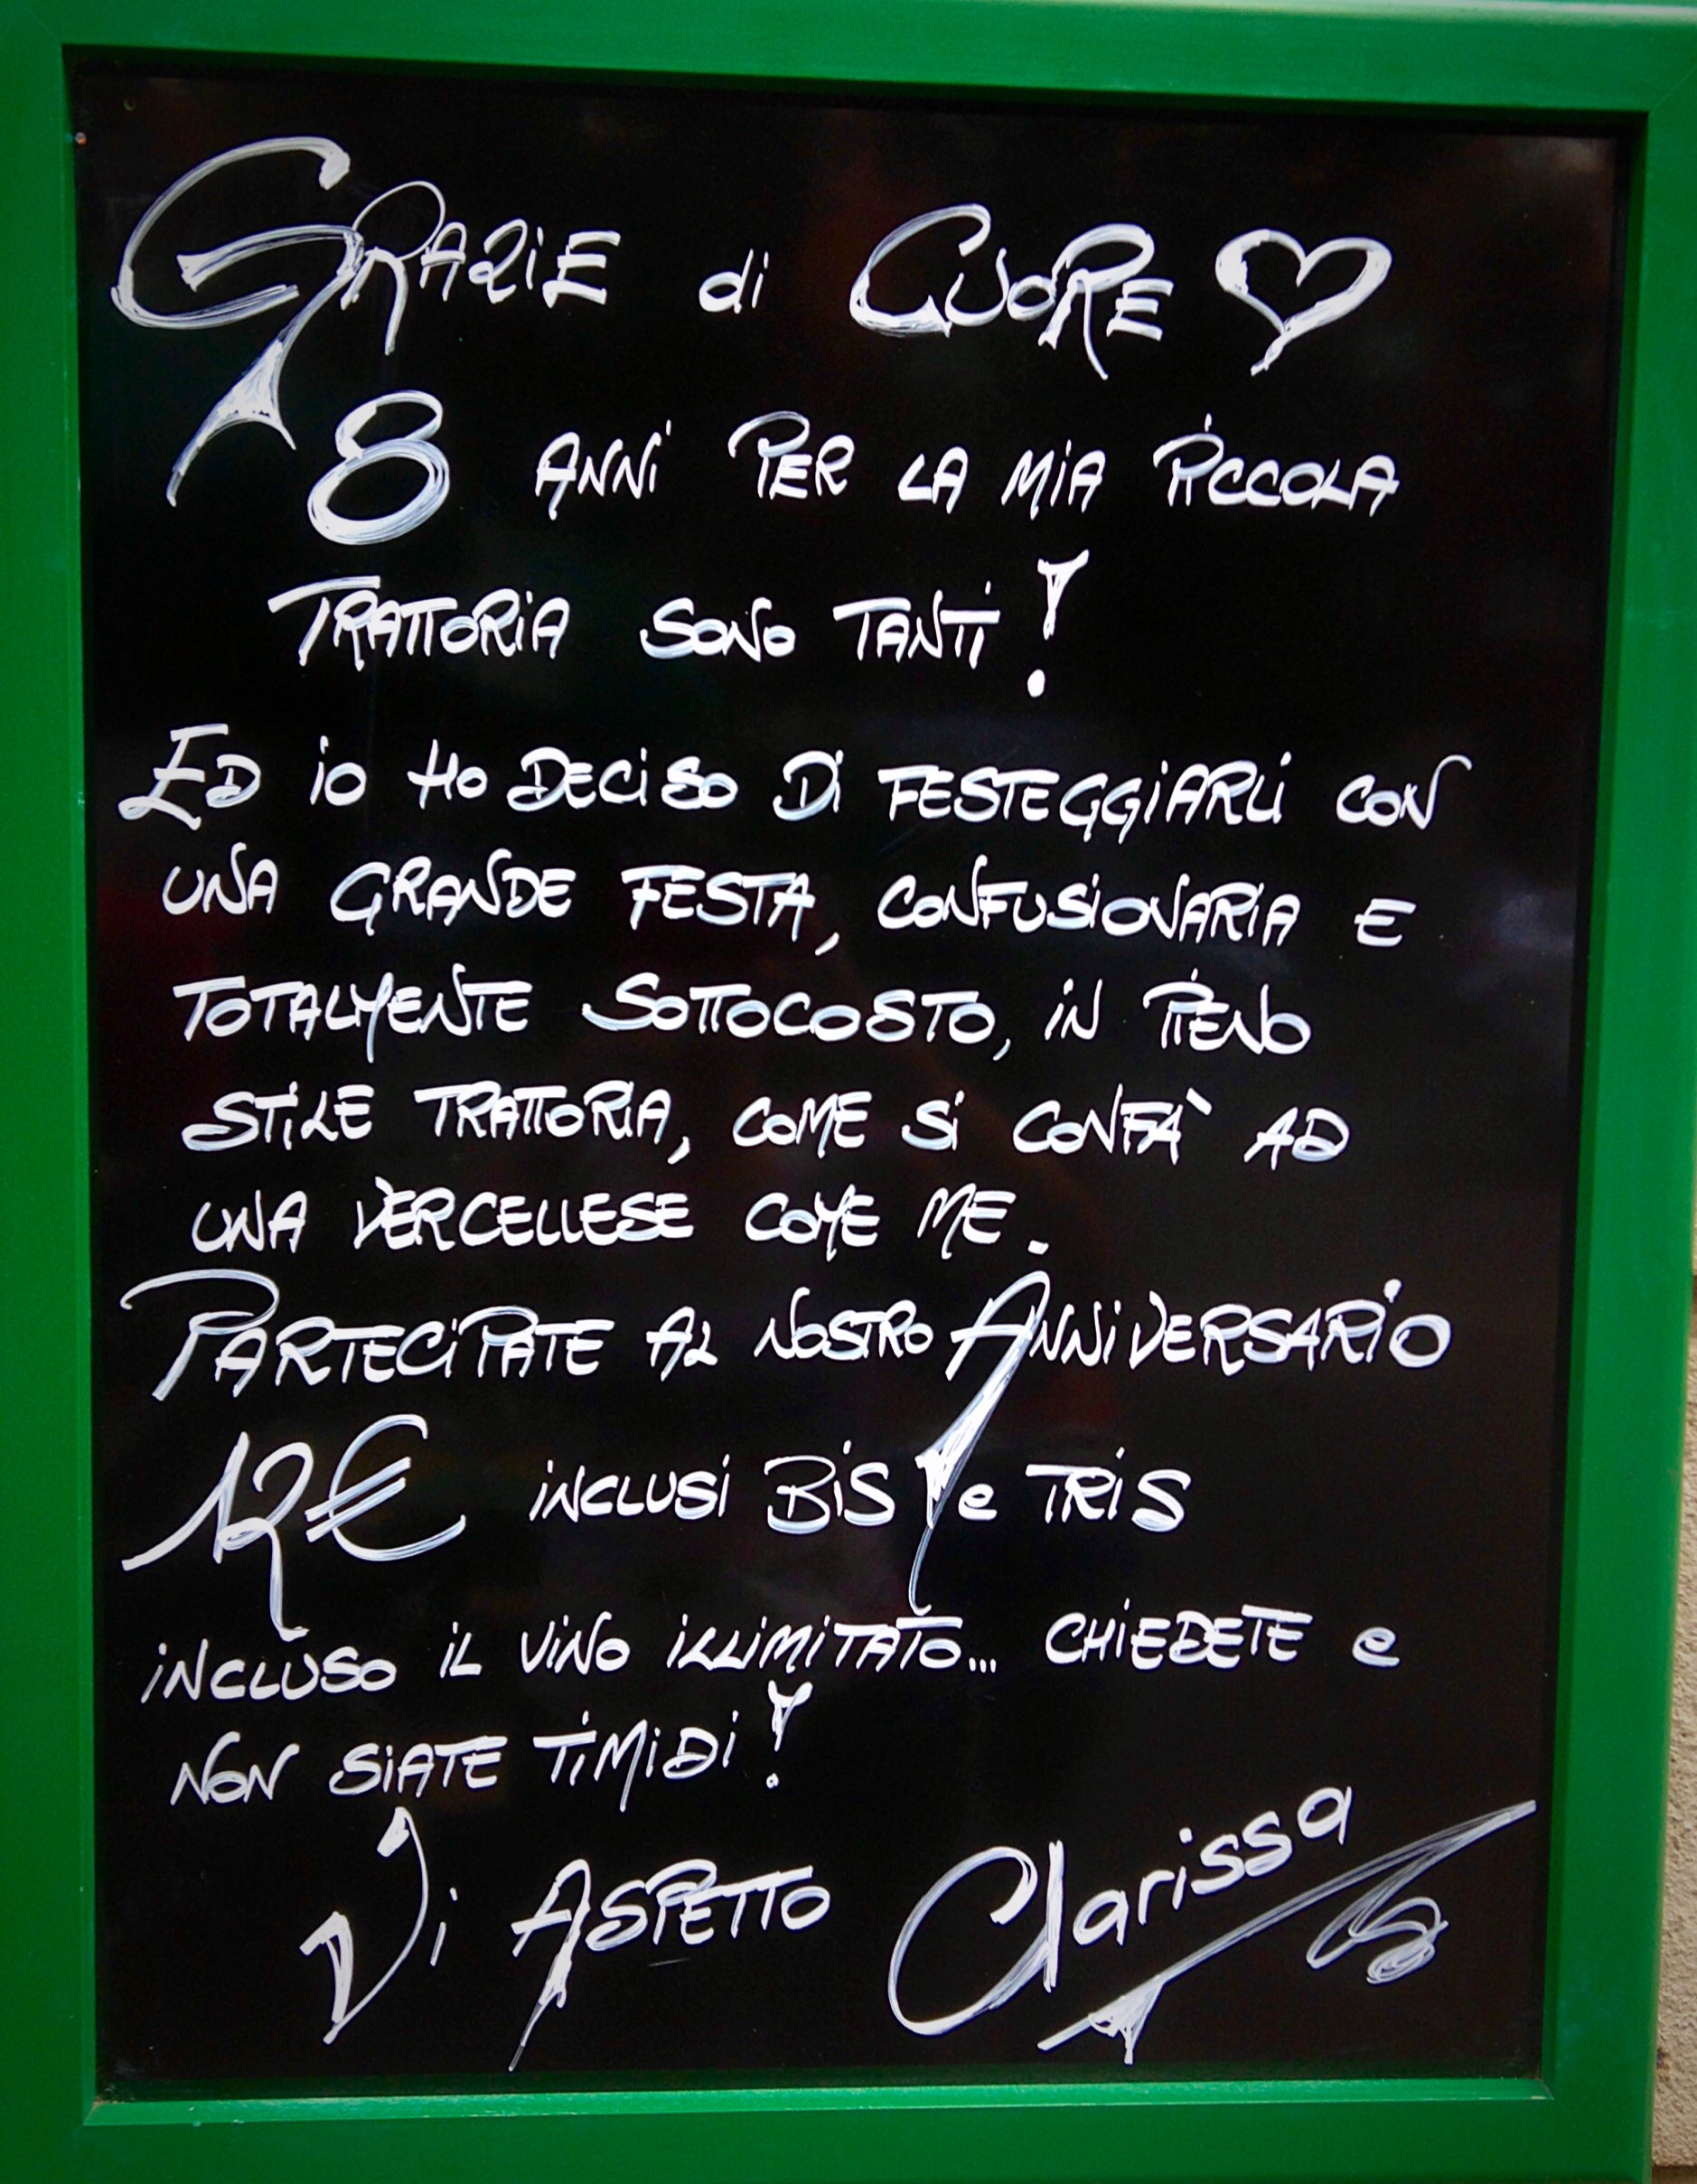 GRAZIE di CUORE
8 ANNI PER LA MIA PICCOLA
TRATTORIA SONO TANTI!
ED IO HO DECISO DI FESTEGGIARLI CON
UNA GRANDE FESTA, CONFUSIONARIA E
TOTALMENTE SOTTOCOSTO, IN PIENO
STILE TRATTORIA, COME SI CONFÀ AD
UNA VERCELLESE COME ME.
PARTECIPATE AL NOSTRO ANNIVERSARIO
12€ INCLUSI BIS e TRIS
INCLUSO IL VINO ILLIMITATO... CHIEDETE e
NON SIATE TIMIDI!
Vi ASPETTO Clarissa